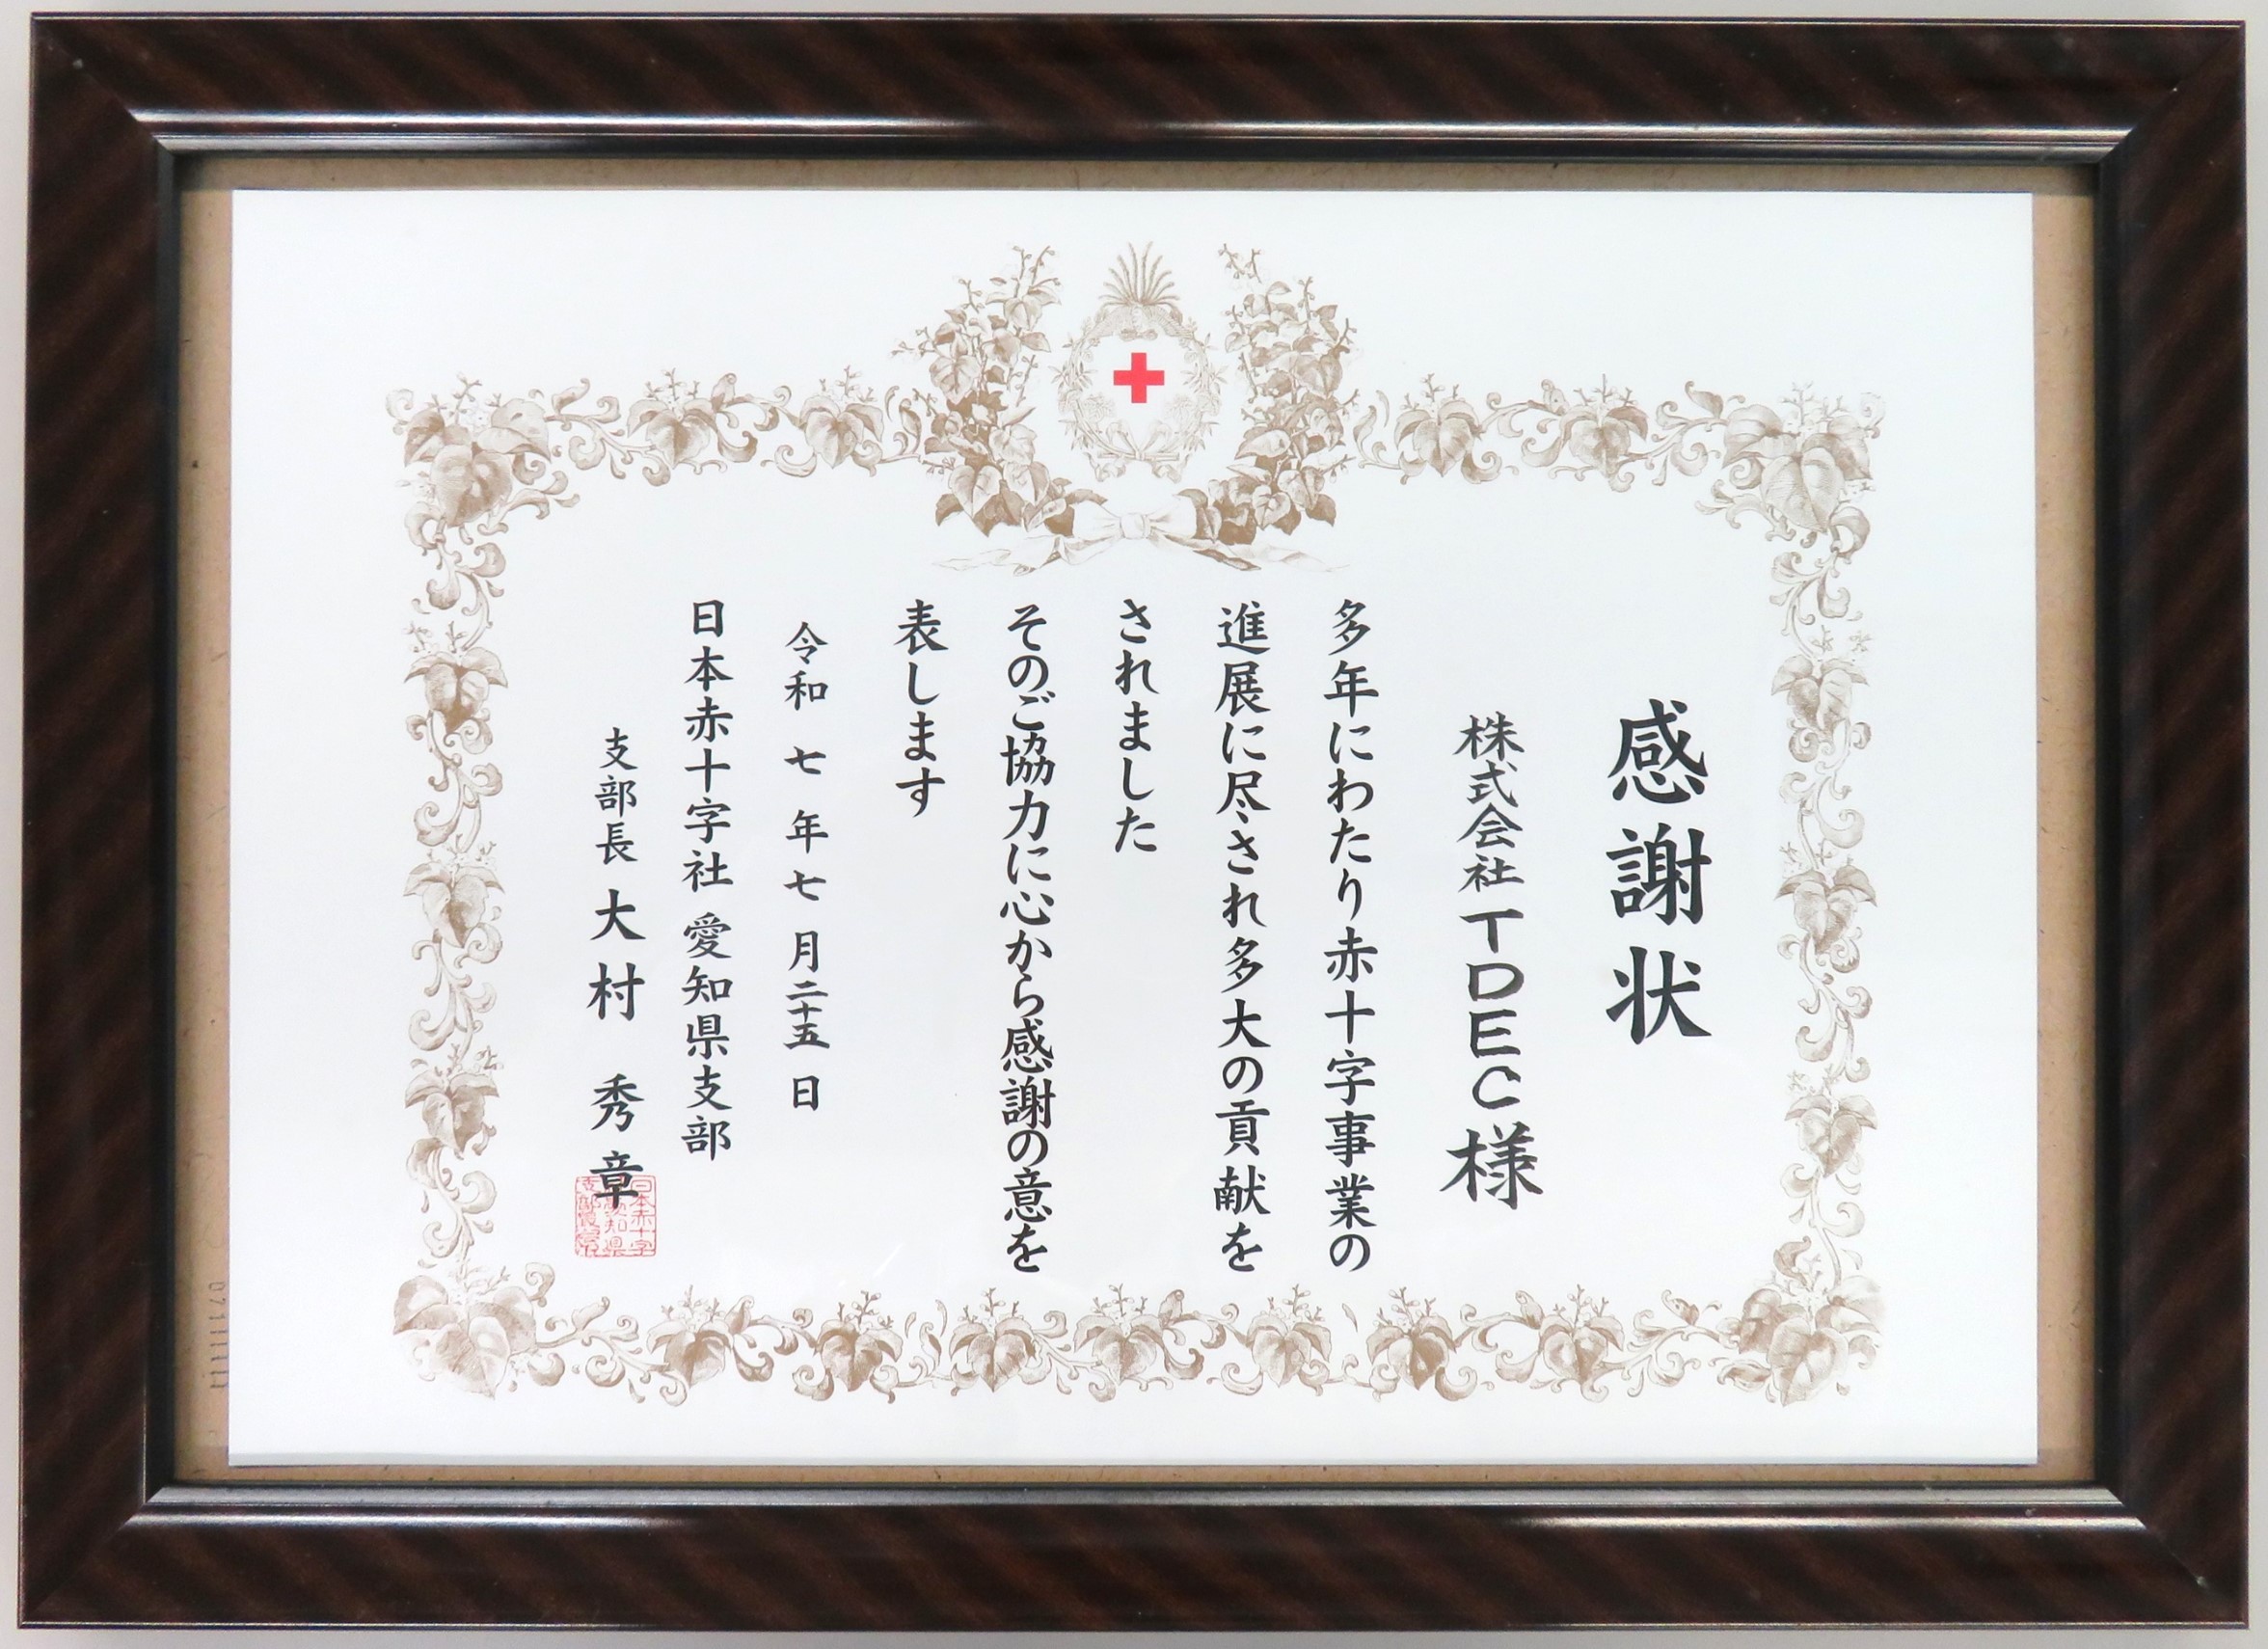 感謝状
株式会社TDEC様
多年にわたり赤十字事業の
進展に尽され多大の貢献を
されました
そのご協力に心から感謝の意を
表します
令和七年七月二十五日
日本赤十字社愛知県支部
支部長大村秀章